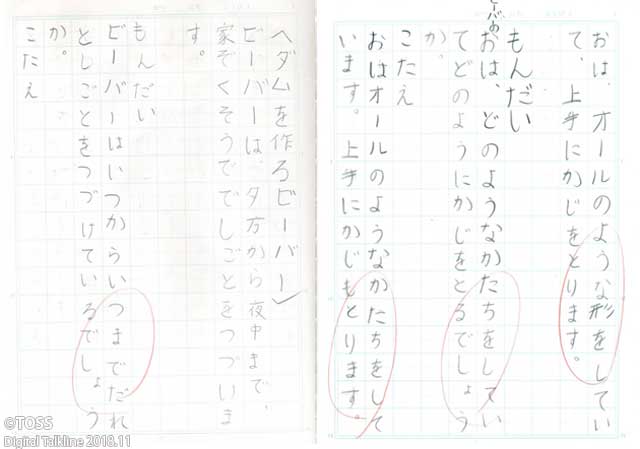 おは、オールのような形をしてい
て、上手にかじをとります。
もんだい
おは、どのようなかたちをしてい
てどのようにかじをとるでしょう
か。
こたえ
おはオールのようなかたちをして
います。上手にかじもとります。
ヘダムを作るビーバー
ビーバーは、夕方から夜中まで、
家ぞくそうででしごとをつづいま
す。
もんだい
ビーバーはいつからいつまでだれ
としごとをつづけているでしょう
か。
こたえ
©TOSS
Digital Talkline 2018.11